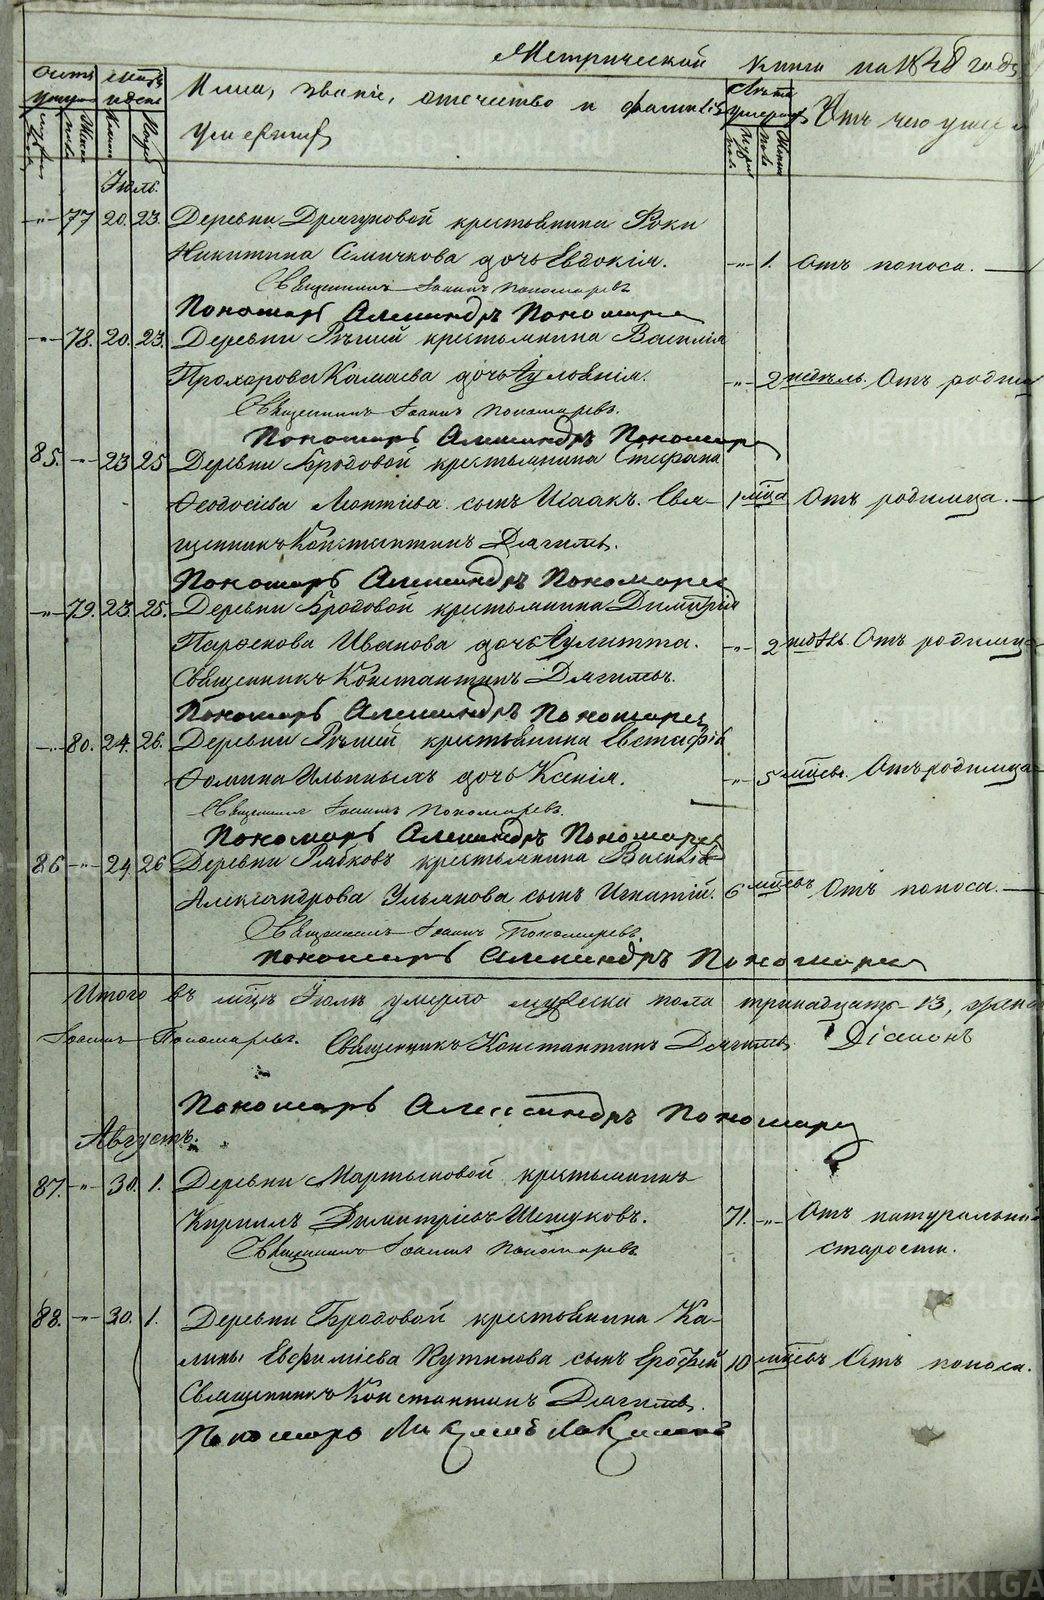 Метрической книги на 1848 годъ
Имена, званіе, отечество и фамиліи
умершихъ
Лѣта умершаго
Отъ чего умеръ
Іюль.
-"- 77 20. 23. Деревни Драгуновой крестьянина Фоки
Никитина Семичкова дочь Евдокія. -"- 1. Отъ поноса.
Священникъ Іоаннъ Пономаревъ
Пономарь Александръ Пономарев
-"- 78. 20. 23. Деревни крестьянина Василія
Прохорова Камаева дочь -"- 2 недѣль. Отъ родимца
Священникъ Іоаннъ Пономаревъ.
Пономарь Александръ Пономарев
85. -"- 23 25 Деревни Бродовой крестьянина Стефана
Феодосіева сынъ Исаакъ. Свя- 1 мѣца Отъ родимца.
щенникъ Константинъ Дягилевъ.
Пономарь Александръ Пономарев
-"- 79. 23. 25. Деревни Бродовой крестьянина Димитрія
Парфенова Иванова дочь Іулитта. -"- 2 недѣль. Отъ родимца
Священникъ Константинъ Дягилевъ.
Пономарь Александръ Пономарев
-"- 80. 24. 26. Деревни крестьянина Евстафія
Фомина Ильиныхъ дочь Ксенія. -"- 5 мѣсяц. Отъ родимца
Священникъ Іоаннъ Пономаревъ.
Пономарь Александръ Пономарев
86 -"- 24 26 Деревни Рябковъ крестьянина Василія
Александрова Ульянова сынъ Игнатій. 6 мѣсцъ Отъ поноса.
Священникъ Іоаннъ Пономаревъ
Пономарь Александръ Пономарев
Итого въ мѣцѣ Іюлѣ умерло мужеска пола тринадцать 13, женска
Іоаннъ Пономаревъ. Священникъ Константинъ Дягилевъ Діаконъ
Пономарь Александръ Пономарев
Августъ.
87. -"- 30. 1. Деревни Мартыновой крестьянинъ
Кириллъ Димитріевъ Шешуковъ. 71. -"- Отъ натуральной
старости.
Священникъ Іоаннъ Пономаревъ
88. -"- 30. 1. Деревни Бродовой крестьянина Ка-
лины Евфиміева Кутикова сынъ Ерофей 10 мѣсцъ Отъ поноса.
Священникъ Константинъ Дягилевъ.
Пономарь
METRIKI.GASO-URAL.RU